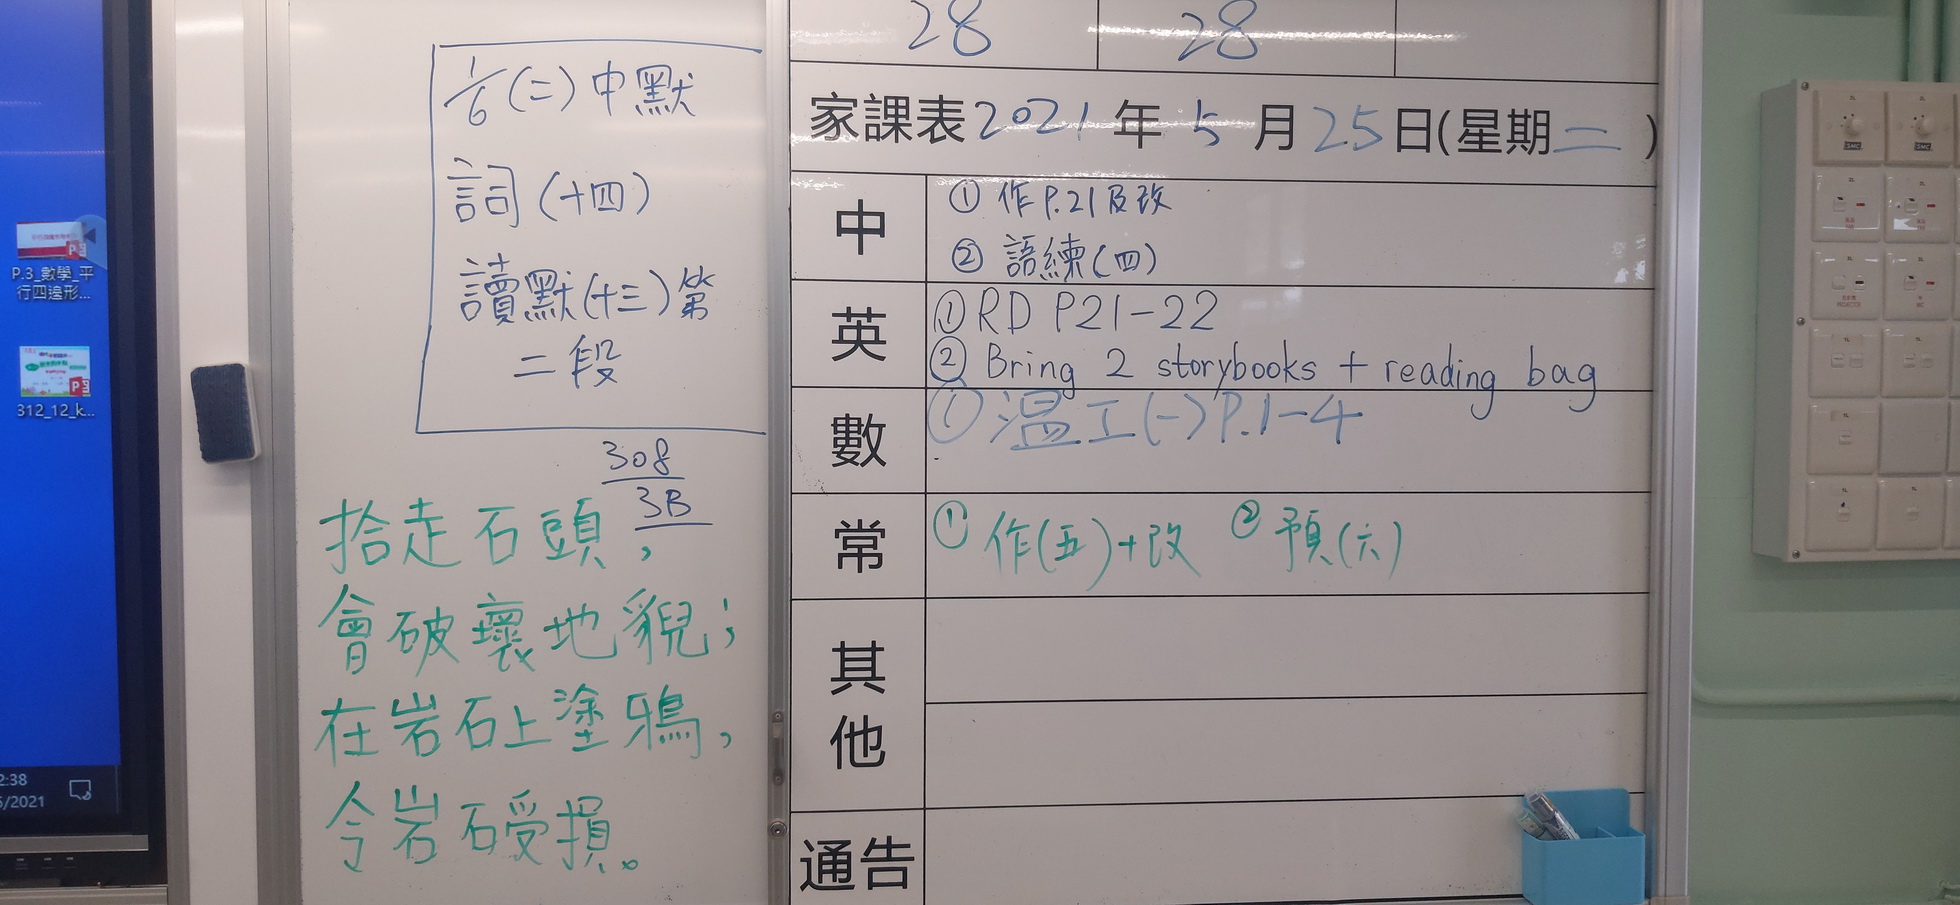 28 28
家課表2021年5月25日(星期二)
中
① 作P.21及改
② 語練(四)
英
① RD P21-22
② Bring 2 storybooks + reading bag
數
① 溫工(一)P.1-4
常
① 作(五)+改 ② 預(六)
其他
通告
1/6(二)中默
詞(十四)
讀默(十三)第
二段
308
3B
拾走石頭,
會破壞地貌;
在岩石上塗鴉,
令岩石受損。
P.3_數學_平
行四邊形...
312_12_k...
2:38
5/2021